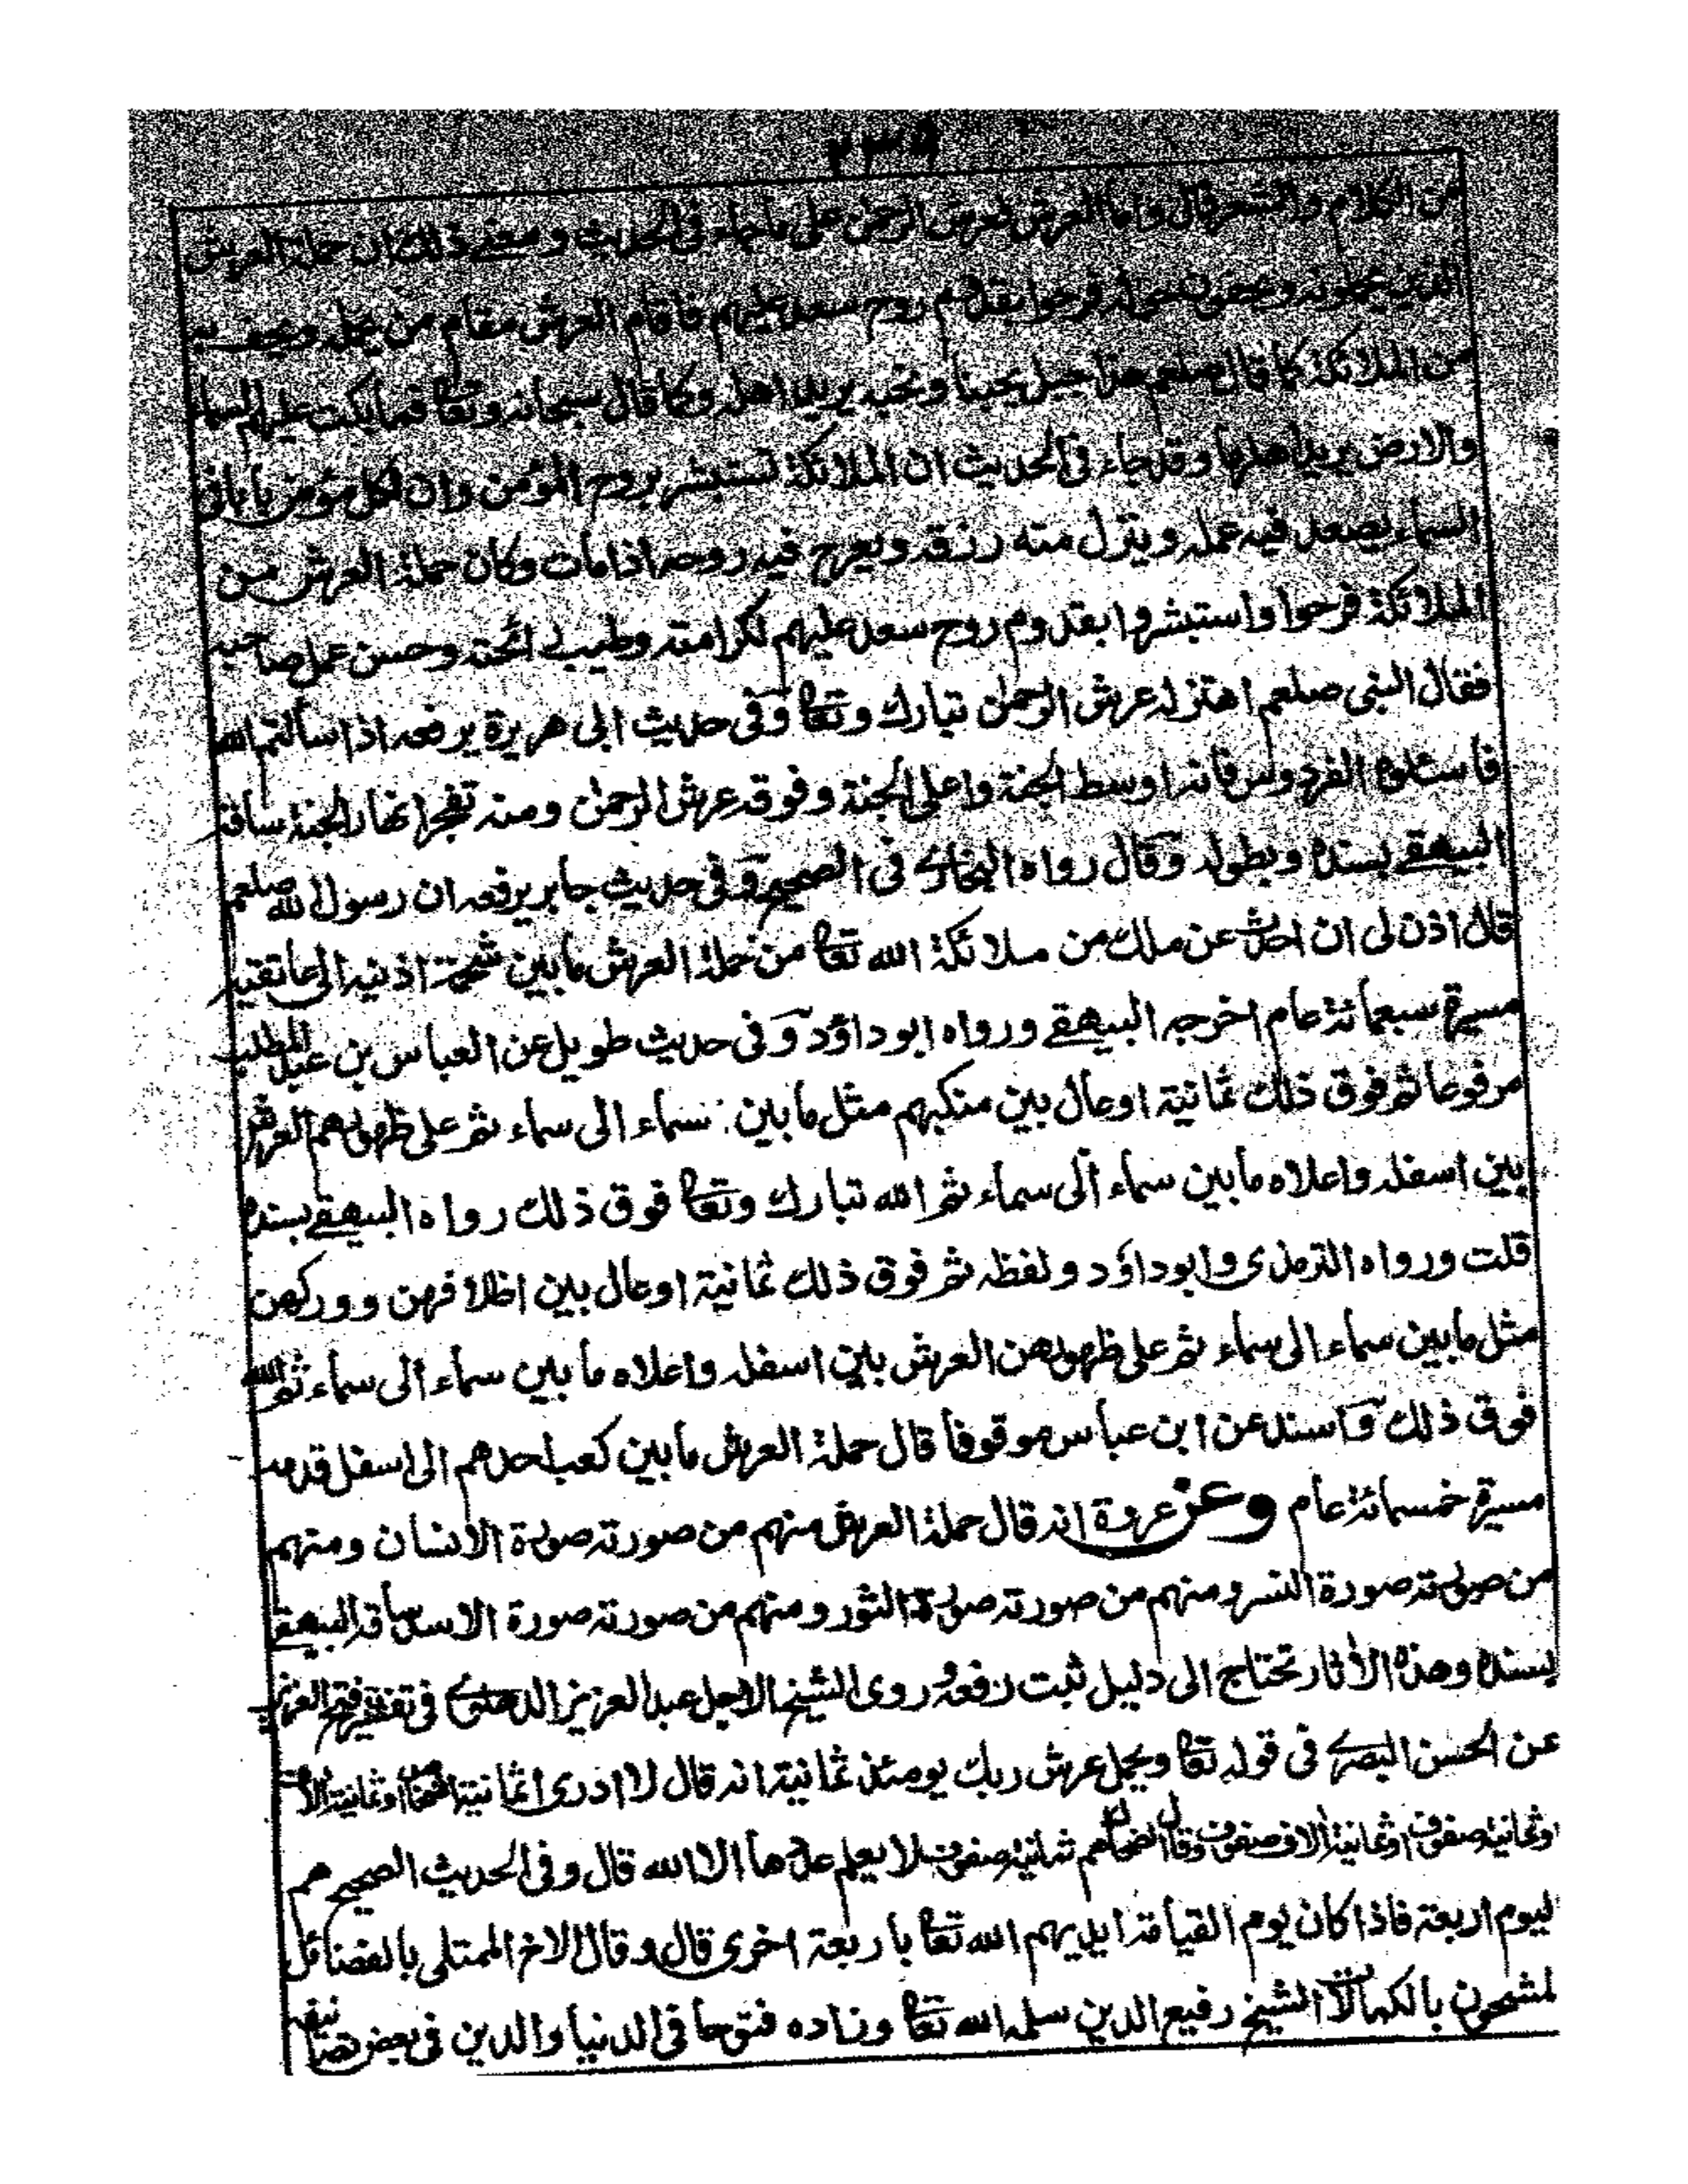 ٢٣٥
من الكلام والشعر قال واما العرش فعرش الرحمٰن على ماجاء فى الحديث ومعنے ذلك ان حملة العرش
الذين يحملونه ويحفون حوله فرحوا بقدوم روح سعد عليهم فاقام العرش مقام من يحمله ويحف به
من الملائكة كما قال صلعم هذا جبل يحبنا ونحبه يريد اهله وكما قال سبحانه وتعا فما بكت عليهم السماء
والارض يريد اهلها وقد جاء فى الحديث ان الملائكة تستبشر بروح المؤمن وان لكل مؤمن بابا فى
السماء يصعد فيه عمله وينزل منه رزقه ويعرج فيه روحه اذا مات وكان حملة العرش من
الملائكة فرحوا واستبشروا بقدوم روح سعد عليهم لكرامته وطيب رائحته وحسن عمل صاحبه
فقال النبى صلعم اهتز له عرش الرحمٰن تبارك وتعا وفى حديث ابى هريرة يرفعه اذا سألتم الله
فاسئلوه الفردوس فانه اوسط الجنة واعلى الجنة وفوقه عرش الرحمٰن ومنه تفجر انهار الجنة ساقه
البيهقے بسنده وبطوله وقال رواه البخارے فى الصحيح وفى حديث جابر يرفعه ان رسول الله صلعم
قال اذن لى ان احدث عن ملك من ملائكة الله تعا من حملة العرش ما بين شحمة اذنيه الى عاتقيه
مسيرة سبعمائة عام اخرجه البيهقے ورواه ابو داؤد وفى حديث طويل عن العباس بن عبد المطلب
مرفوعا ثم فوق ذلك ثمانية اوعال بين منكبهم مثل ما بين سماء الى سماء ثم على ظهورهم العرش
بين اسفله واعلاه ما بين سماء الى سماء ثم الله تبارك وتعا فوق ذلك رواه البيهقے بسنده
قلت ورواه الترمذى وابو داؤد ولفظه ثم فوق ذلك ثمانية اوعال بين اظلافهن ووركهن
مثل ما بين سماء الى سماء ثم على ظهورهن العرش بين اسفله واعلاه ما بين سماء الى سماء ثم الله
فوق ذلك واسند عن ابن عباس موقوفا قال حملة العرش ما بين كعب احدهم الى اسفل قدمه
مسيرة خمسمائة عام وعن عروة انه قال حملة العرش منهم من صورته صورة الانسان ومنهم
من صورته صورة النسر ومنهم من صورته صورة الثور ومنهم من صورته صورة الاسد ساقه البيهقے
بسنده وهذه الأثار تحتاج الى دليل ثبت رفعه وروى الشيخ الاجل عبد العزيز الدهلوے فى تفسير فتح العزيز
عن الحسن البصرے فى قوله تعا ويحمل عرش ربك يومئذ ثمانية انه قال لا ادرى اثمانية اشخاص او ثمانية الاف
او ثمانية صفوف او ثمانية ألاف صفوف وقال الضحاك هم ثمانية صفوف لا يعلم عددها الا الله قال وفى الحديث الصحيح هم
ليوم اربعة فاذا كان يوم القيامة ايديهم الله تعا باربعة اخرى قال وقال الاخ الممتلى بالفضائل
لمشحون بالكمالات الشيخ رفيع الدين سلمه الله تعا وزاده فتوحا فى الدنيا والدين فى بعض تصانيفه